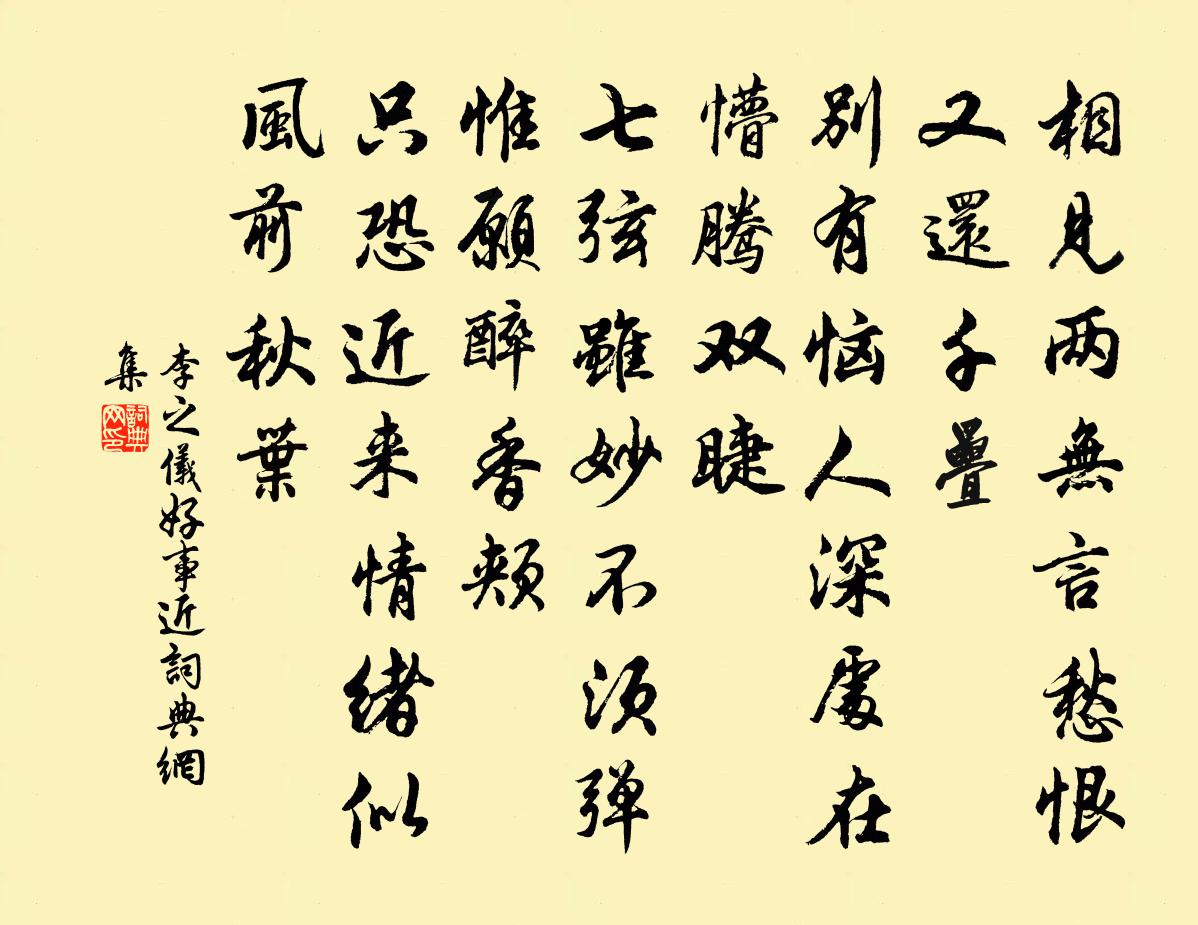 相見两無言愁恨
又還千疊
別有恼人深處在
懵腾双睫
七弦雖妙不须弹
惟願醉香頰
只恐近来情緒似
風前秋葉
李之儀好事近詞典網
集
詞典网印